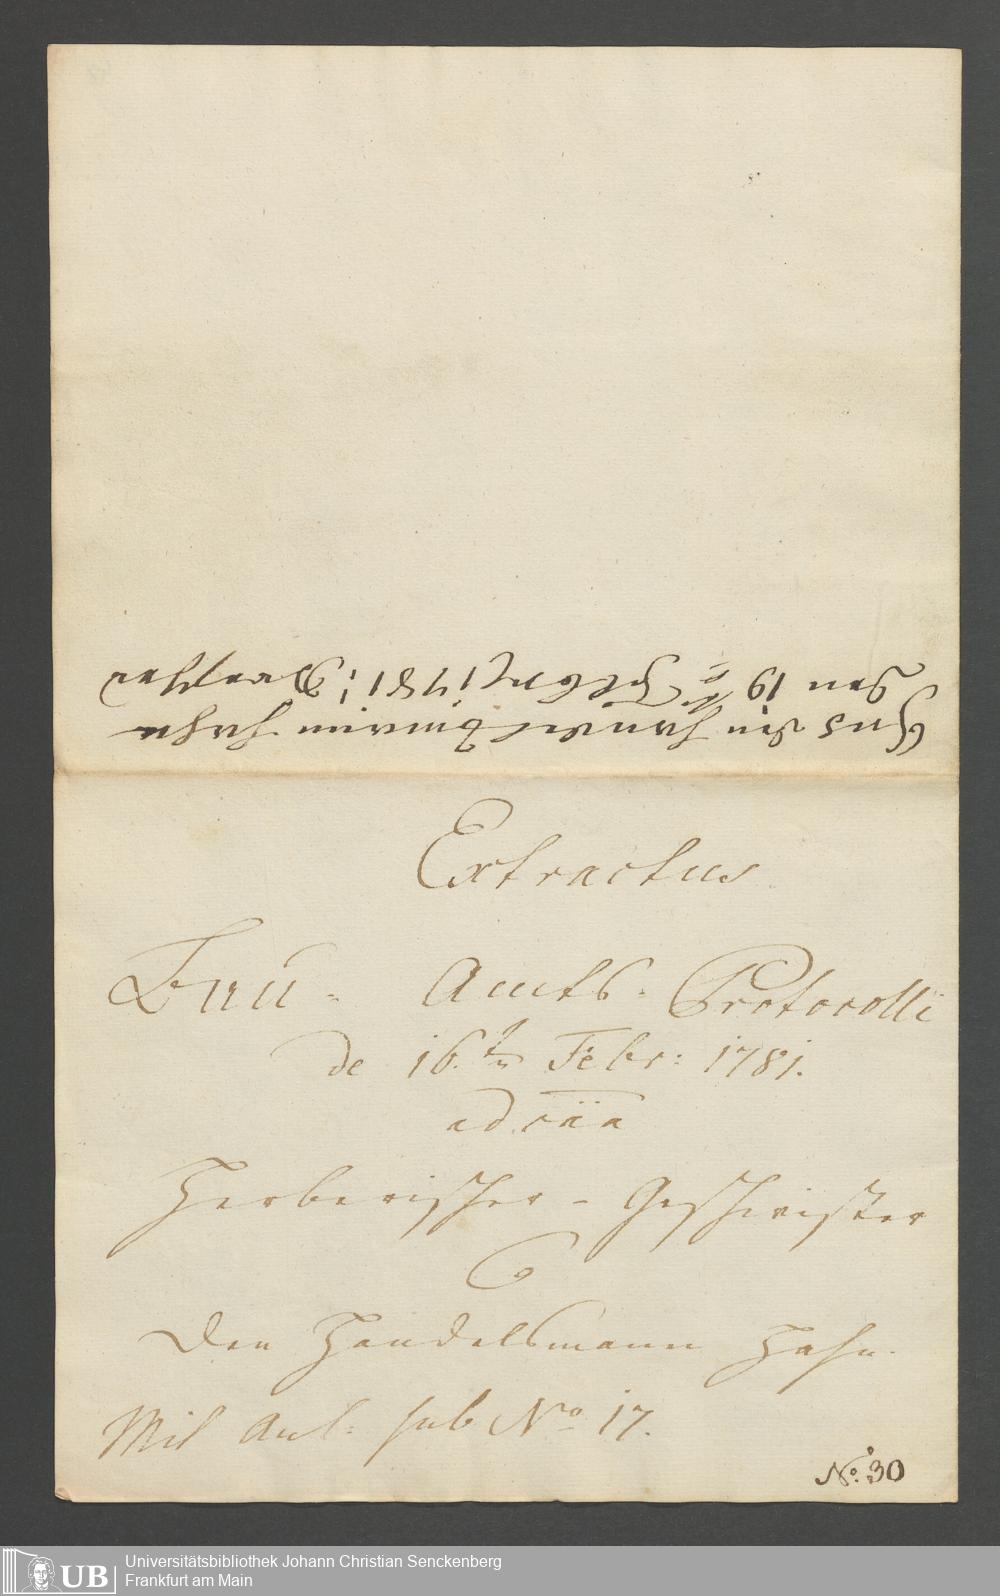 Hus den handelsmann Hahn
den 19 Feb 1781
Extractus
Bau- Amts- Protocolli
de 16.tn Febr: 1781.
ad cãa
Herberischer - Geschwister
C
den Handelsmann Hahn.
Mit Anl: sub No 17.
No. 30
Universitätsbibliothek Johann Christian Senckenberg
Frankfurt am Main
UB